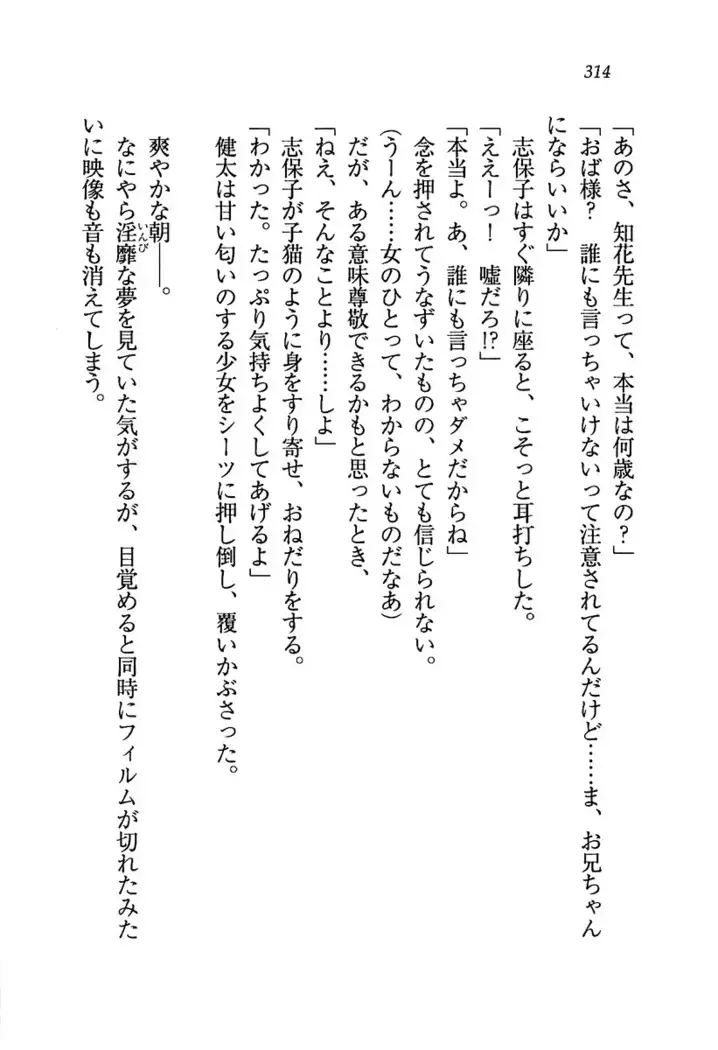 314
「あのさ、知花先生って、本当は何歳なの？」
「おば様？　誰にも言っちゃいけないって注意されてるんだけど……ま、お兄ちゃん
にならいいか」
志保子はすぐ隣りに座ると、こそっと耳打ちした。
「ええーっ！　嘘だろ!?」
「本当よ。あ、誰にも言っちゃダメだからね」
念を押されてうなずいたものの、とても信じられない。
(うーん……女のひとって、わからないものだなあ)
だが、ある意味尊敬できるかもと思ったとき、
「ねえ、そんなことより……しよ」
志保子が子猫のように身をすり寄せ、おねだりをする。
「わかった。たっぷり気持ちよくしてあげるよ」
健太は甘い匂いのする少女をシーツに押し倒し、覆いかぶさった。
爽やかな朝――。
なにやら淫靡いんびな夢を見ていた気がするが、目覚めると同時にフィルムが切れたみた
いに映像も音も消えてしまう。